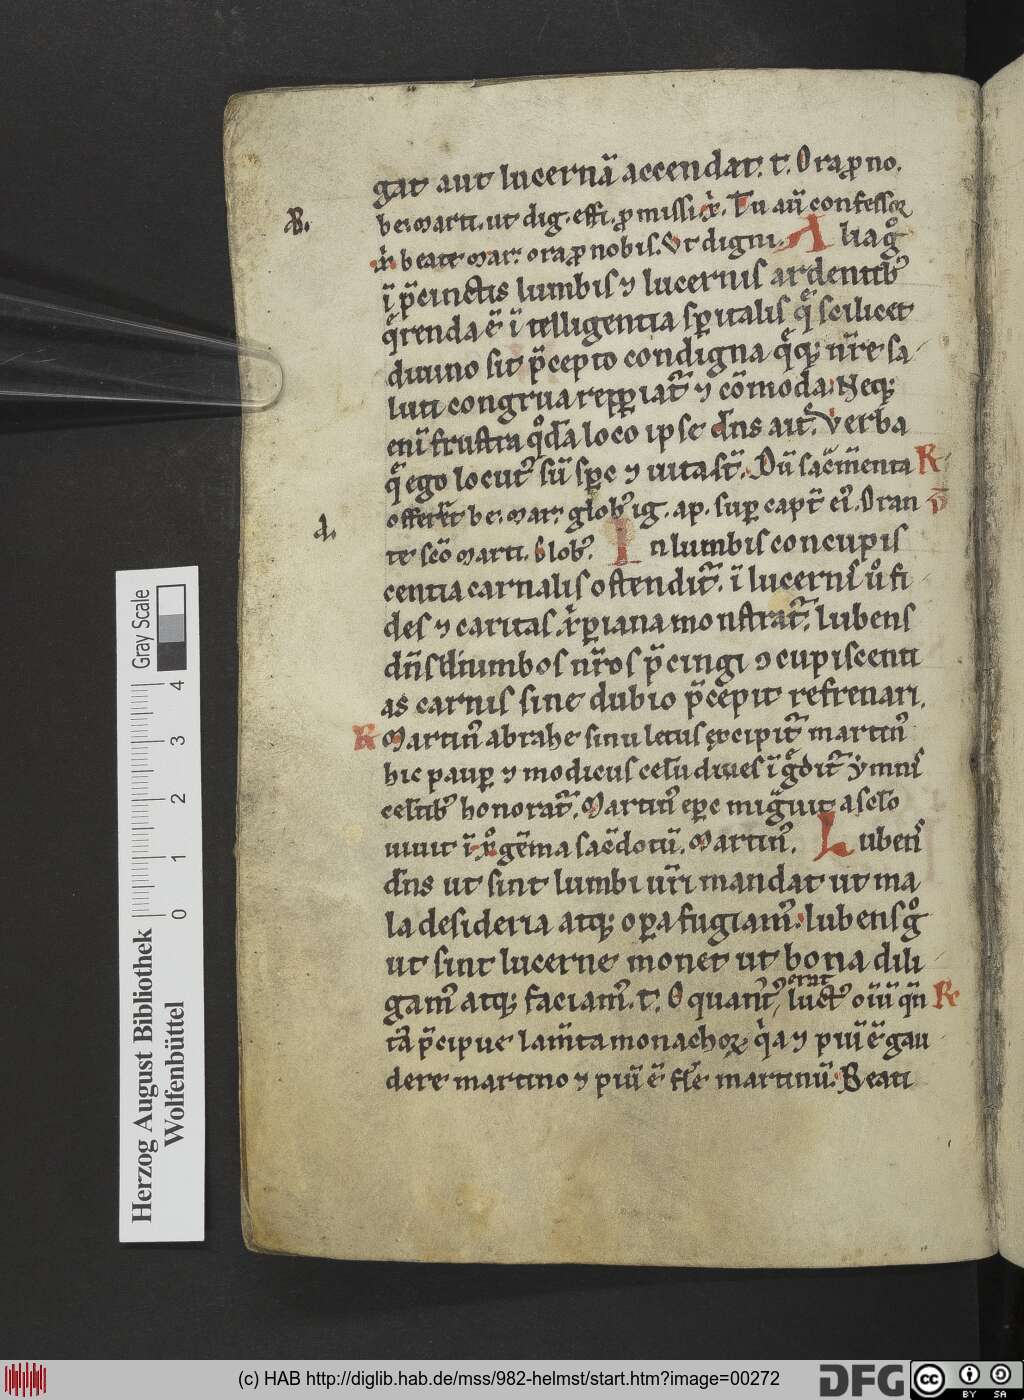 gat aut lucernā accendat. t. Ora ꝓ no.
be. marti. ut dig. effi. ꝓmissi. xp̄i. Tu aū confessoꝝ
B.
xp̄i beate mar. ora ꝓ nobis. Ut digni. Alia gͦ
ī p̄cinctis lumbis ⁊ lucernis ardentibꝰ
q̄renda ē ītelligentia spiritalis q̄ scilicet
diuino sit p̄cepto condigna q̄qꝫ nr̄e sa
luti congrua reꝑiat᷑ ⁊ cōmoda. Neqꝫ
enī frustra qͦdā loco ipse dn̄s ait. Verba
q̄ ego locutꝰ sū spc̄ ⁊ uita st̄. Dū sac̄menta R
offerēt be. mar. globꝰ ig. ap. suꝑ capt̄ eiꝰ. Oran V
A.
te sc̄o marti. globꝰ. In lumbis concupis
centia carnalis ostendit᷑. ī lucernis u̓ fi
des ⁊ caritas xp̄iana monstrat᷑. Iubens
dn̄s lumbos nr̄os p̄cingi ꝯcupiscenti
as carnis sine dubio p̄cepit refrenari.
R Martinꝰ abrahe sinu letus excipit᷑ martinꝰ
hic pauꝑ ⁊ modicus celū diues īgͣdit᷑ ymnis
celtibꝰ honorat᷑. Martinꝰ epc̄ migͣuit a sclo
uiuit ī xp̄o gēma sac̄dotū. Martinꝰ. Iubens
dn̄s ut sint lumbi ur̄i mandat ut ma
la desideria atqꝫ oꝑa fugiamꝰ. Iubens gͦ
ut sint lucerne monet ut bona dili
erat
gamꝰ atqꝫ faciamꝰ. t. O quantꝰ luctꝰ oīū qn̄ R
tā p̄cipue lam̄ta monachoꝝ qͥa ⁊ piū ē gau
dere martino ⁊ piū ē fle̅ martinū. Beati
Herzog August Bibliothek
Wolfenbüttel
0 1 2 3 4
Gray Scale
(c) HAB http://diglib.hab.de/mss/982-helmst/start.htm?image=00272
DFG
cc BY SA